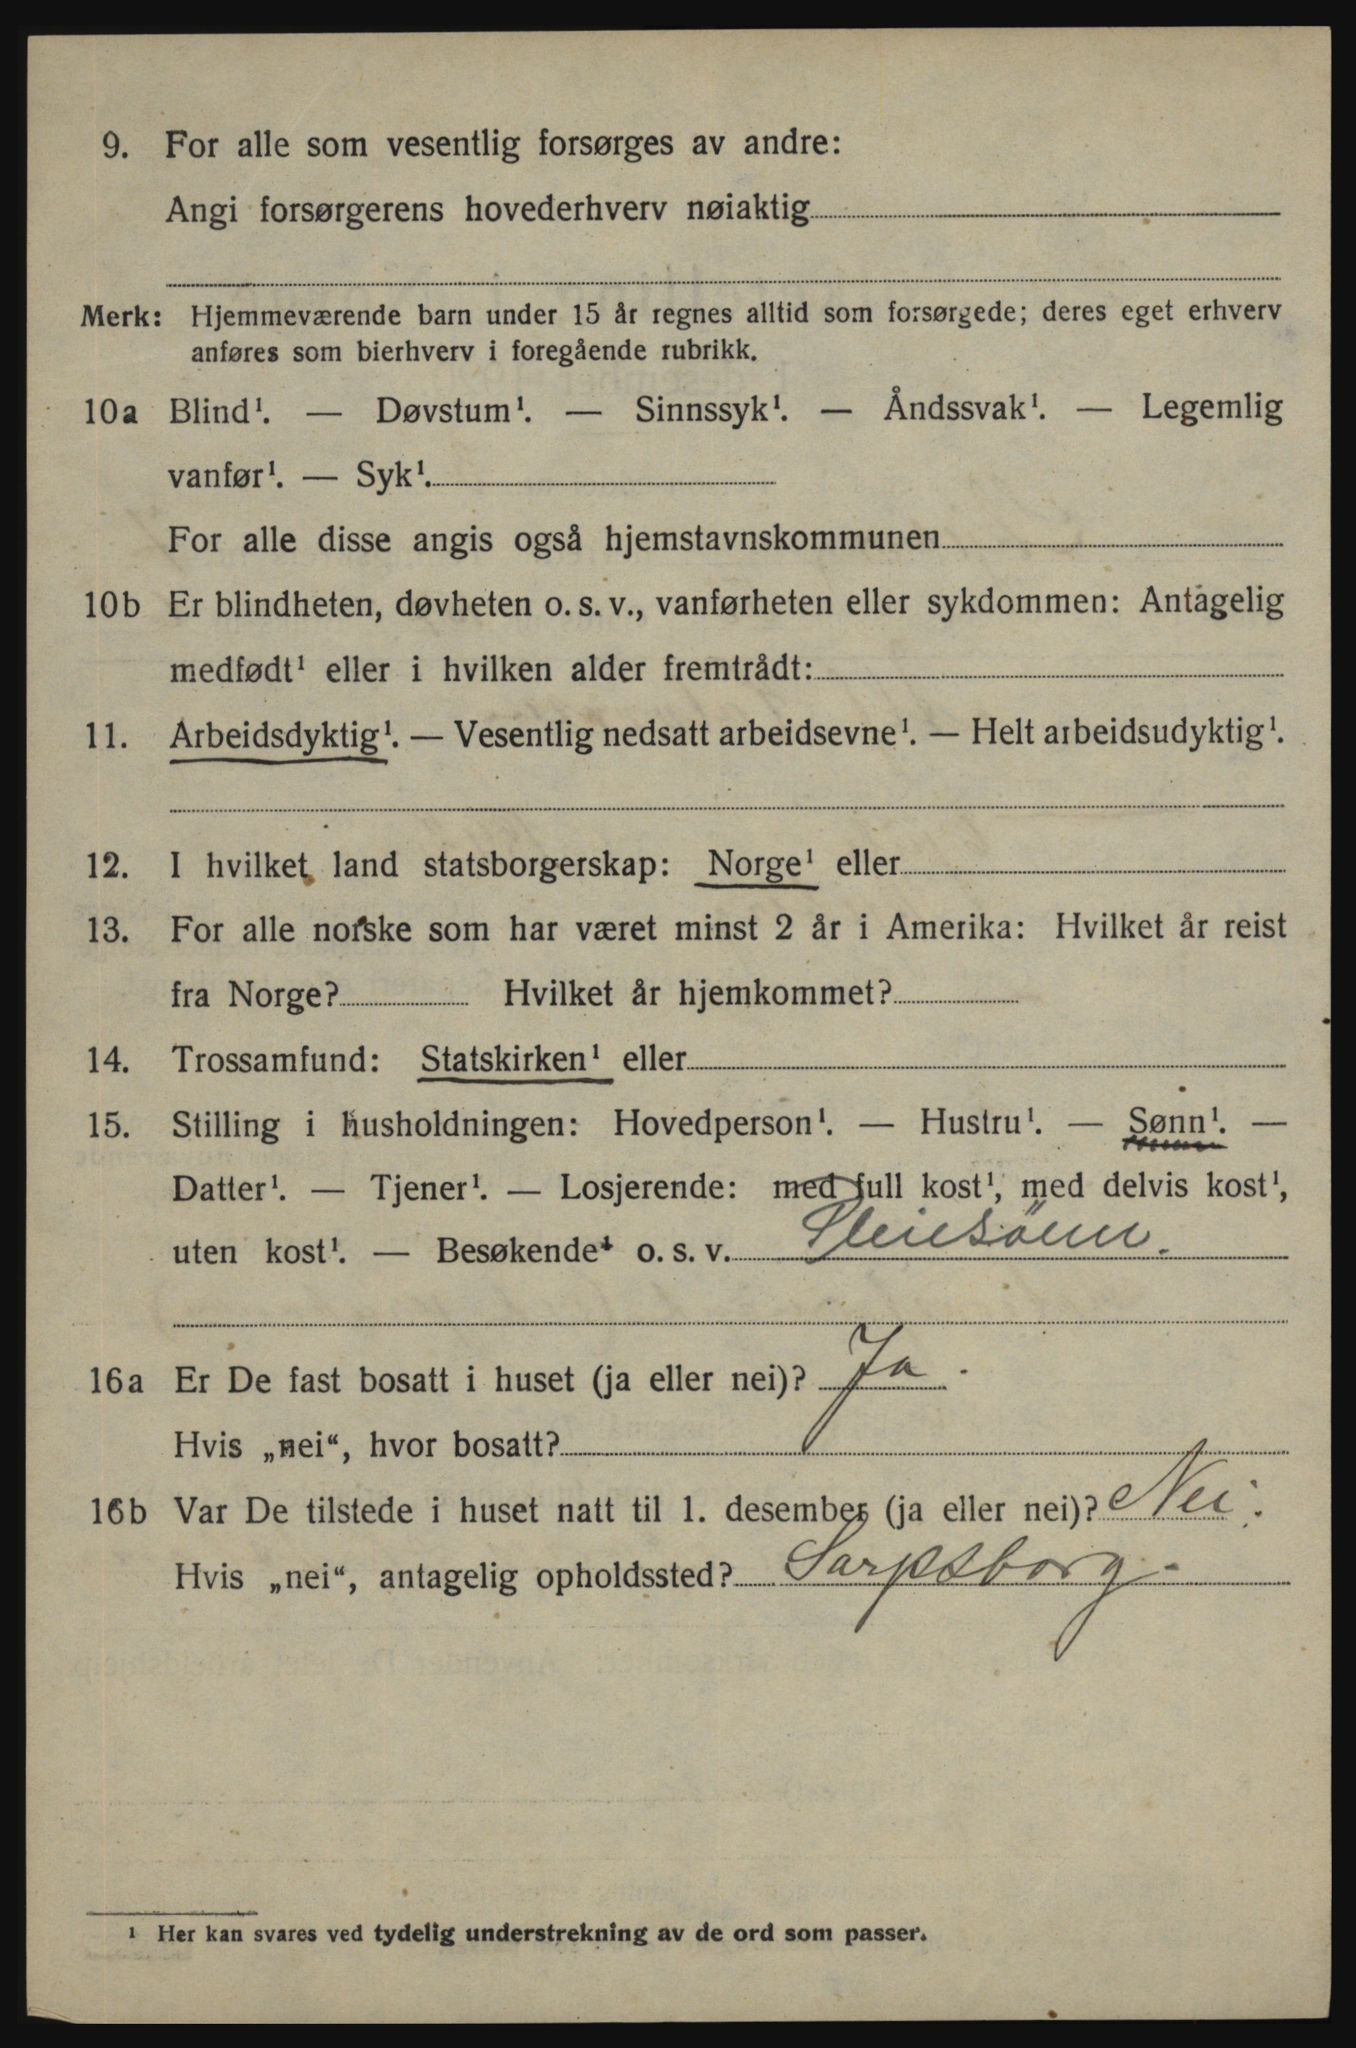 9. For alle som vesentlig forsørges av andre:
Angi forsørgerens hovederhverv nøiaktig
Merk: Hjemmeværende barn under 15 år regnes alltid som forsørgede; deres eget erhverv
anføres som bierhverv i foregående rubrikk.
10a Blind¹. — Døvstum¹. — Sinnssyk¹. — Åndssvak¹. — Legemlig
vanfør¹. — Syk¹.
For alle disse angis også hjemstavnskommunen
10b Er blindheten, døvheten o. s. v., vanførheten eller sykdommen: Antagelig
medfødt¹ eller i hvilken alder fremtrådt:
11. Arbeidsdyktig¹. — Vesentlig nedsatt arbeidsevne¹. — Helt arbeidsudyktig¹.
12. I hvilket land statsborgerskap: Norge¹ eller
13. For alle norske som har været minst 2 år i Amerika: Hvilket år reist
fra Norge? Hvilket år hjemkommet?
14. Trossamfund: Statskirken¹ eller
15. Stilling i husholdningen: Hovedperson¹. — Hustru¹. — Sønn¹. —
Datter¹. — Tjener¹. — Losjerende: med full kost¹, med delvis kost¹,
uten kost¹. — Besøkende¹ o. s. v. Pleiesønn.
16a Er De fast bosatt i huset (ja eller nei)? Ja.
Hvis „nei“, hvor bosatt?
16b Var De tilstede i huset natt til 1. desember (ja eller nei)? Nei.
Hvis „nei“, antagelig opholdssted? Sarpsborg.
¹ Her kan svares ved tydelig understrekning av de ord som passer.